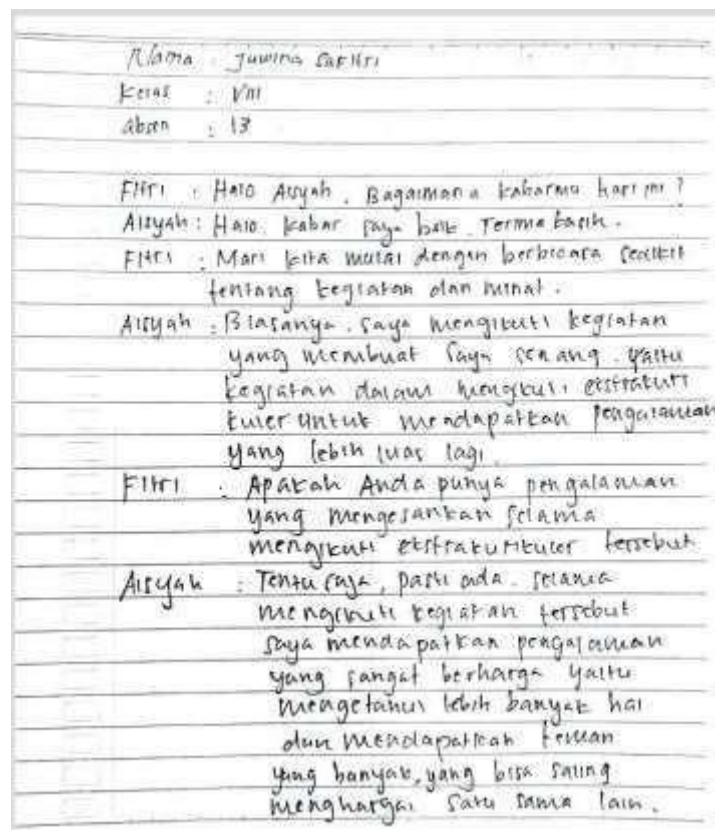 Nama : Juwina Safitri
Kelas : VIII
Absen : 13
Fitri : Halo Aisyah. Bagaimana kabarmu hari ini?
Aisyah : Halo. kabar saya baik. Terima kasih.
Fitri : Mari kita mulai dengan berbicara sedikit
tentang kegiatan dan minat.
Aisyah : Biasanya. saya mengikuti kegiatan
yang membuat saya senang. yaitu
kegiatan dalam mengikuti ekstrakuri
kuler untuk mendapatkan pengalaman
yang lebih luas lagi.
Fitri : Apakah Anda punya pengalaman
yang mengesankan selama
mengikuti ekstrakurikuler tersebut
Aisyah : Tentu saja, pasti ada. selama
mengikuti kegiatan tersebut
saya mendapatkan pengalaman
yang sangat berharga yaitu
mengetahui lebih banyak hal
dan mendapatkan teman
yang banyak, yang bisa saling
menghargai satu sama lain.